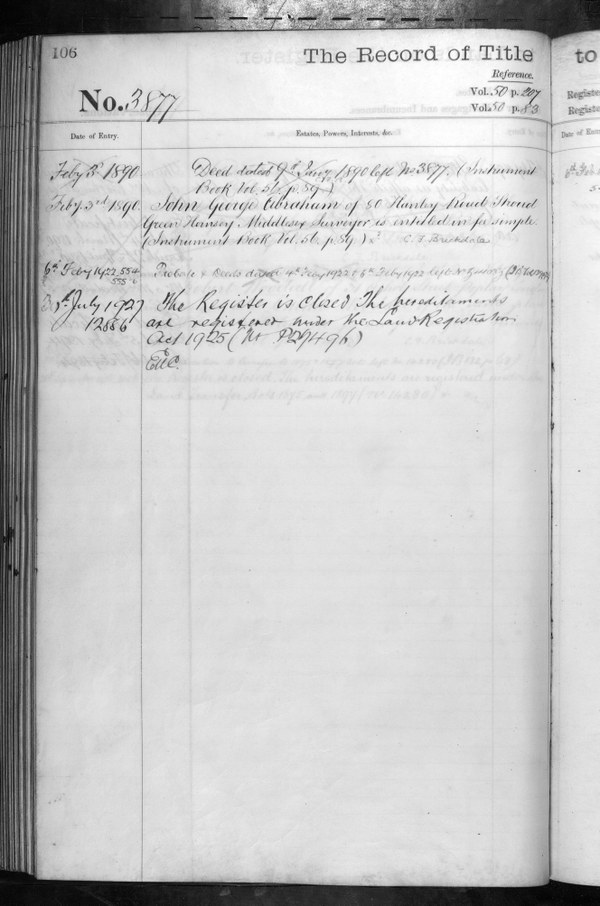 106
The Record of Title
to
Reference.
Vol. 50 p. 207
Vol. 50 p. 83
Registe
Registe
No. 3877
Date of Entry.
Estates, Powers, Interests, &c.
Feby 3d 1890
Deed dated 9th Jany 1890 left No 3877. (Instrument
Book Vol. 56. p. 59.)
Feby. 3rd 1890
John George Abraham of 80 Road Stroud
Green Hornsey Middlesex Surveyor is entitled in fee simple.
(Instrument Book, Vol. 56. p. 59.)
6th Feby 1922
Probate & Deeds dated 4th Feby 1922 & 6th Feby 1922 left
1st July 1927
The Register is closed The hereditaments
12886
are registered under the Land Registration
Act 1925 (No P29496)